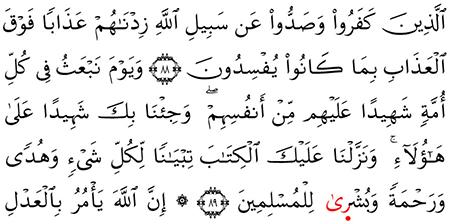 ٱلَّذِينَ كَفَرُوا۟ وَصَدُّوا۟ عَن سَبِيلِ ٱللَّهِ زِدْنَـٰهُمْ عَذَابًا فَوْقَ
ٱلْعَذَابِ بِمَا كَانُوا۟ يُفْسِدُونَ ﴿٨٨﴾ وَيَوْمَ نَبْعَثُ فِى كُلِّ
أُمَّةٍ شَهِيدًا عَلَيْهِم مِّنْ أَنفُسِهِمْ ۖ وَجِئْنَا بِكَ شَهِيدًا عَلَىٰ
هَـٰٓؤُلَآءِ ۚ وَنَزَّلْنَا عَلَيْكَ ٱلْكِتَـٰبَ تِبْيَـٰنًا لِّكُلِّ شَىْءٍ وَهُدًى
وَرَحْمَةً وَبُشْرٜىٰ لِلْمُسْلِمِينَ ﴿٨٩﴾ ۞ إِنَّ ٱللَّهَ يَأْمُرُ بِٱلْعَدْلِ